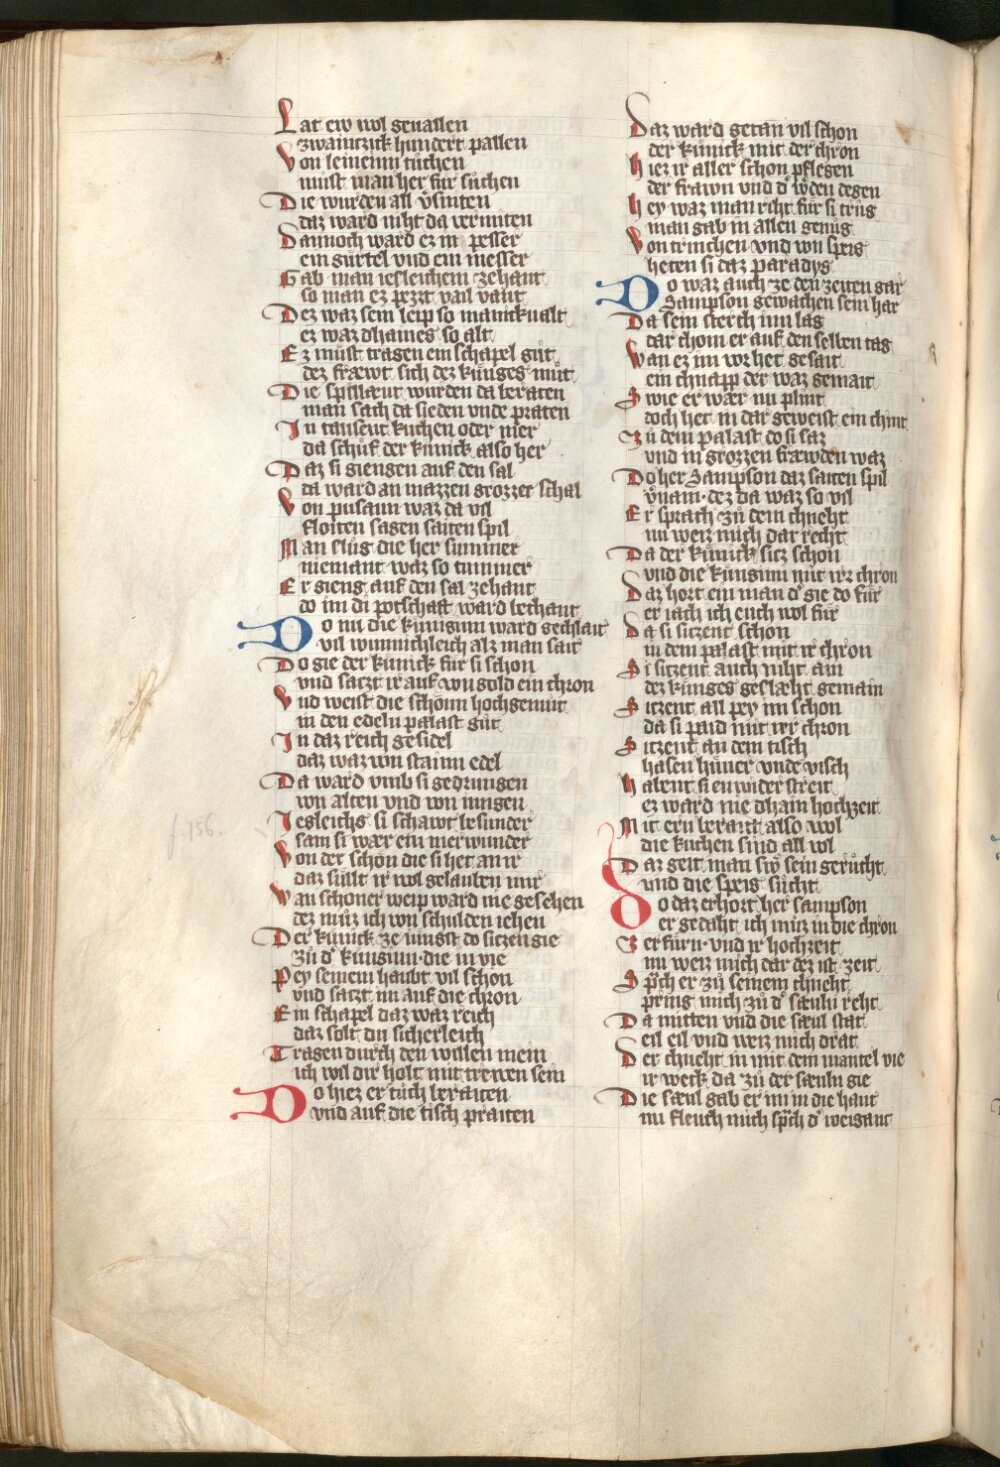 Lat ew wol geuallen
zwaintzick hundert pallen
Von leineinn tuͤchen
must man her fur suͤchen
Die wurden all v̓sniten
daz ward niht da vermiten
Dannoch ward ez in pesser
ein guͤrtel vnd ein messer
Gab man iesleichem zehant
so man ez pezzt vail vant
Dez waz sein leip so manickualt
ez waz dhaines so alt
Ez muͤst tragen ein schapel guͤt
dez fraewt sich dez kuͤnges muͤt
Die spillaeut wurden da beraten
man sach da sieden vnde praten
In tausent kuchen oder mer
da schuͤf der kunick also her
Daz si giengen auf den sal
da ward an mazzen grozzer schal
Von pusaun waz da vil
floiten sagen saiten spil
Man sluͤg die her summer
niemant waz so tummer
Er gieng auf den sal zehant
do im di potschaft ward bechant
Do nu die kunigein ward gechlait
vil wunnichleich alz man sait
Do gie der kunick fur si schon
vnd satzt ir auf von gold ein chron
Vnd weist die schoͤnn hochgemut
in den edeln palast guͤt
In daz reich gesidel
daz waz von stainn edel
Da ward vmb si gedrungen
von alten vnd von iungen
Iegleichs si schawt besunder
sam si waer ein merwunder
Von der schoͤn die si het an ir
daz suͤllt ir wol gelauben mir
Wan schoner weip ward nie gesehen
dez muz ich von schulden iehen
Der kunick ze uingst do sitzen gie
zuͤ d̓ kunigin die in vie
Pey seinem haubt vil schon
vnd satzt im auf die chron
Ein schapel daz waz reich
daz solt du sicherleich
Tragen durch den willen mein
ich wil dir holt mit trewen sein
Do hiez er tuͤch beraiten
vnd auf die tisch praiten
Daz ward getan vil schon
der kunick mit der chron
Hiez ir aller schon pflegen
der frawn vnd d̓ w̓den degen
Hey waz man reht fuͤr si truͤg
man gab in allen genuͤg
Von trinchen vnd von speis
heten si daz paradys
Do waz auch ze den zeiten gar
Sampson gewachen sein har
Da sein sterch inn lag
dar chom er auf den selben tag
Wan ez im vor het gesait
ein chnapp der waz gemait
Swie er waer nu plint
doch het in dar geweist ein chint
Zuͤ dem palast do si saz
vnd in grozzen fraewden waz
Do her Sampson daz saiten spil
v̓nam dez da waz so vil
Er sprach zuͤ dem chneht
nu weiz mich dar recht
Da der kunick sitz schon
vnd die kuniginn mit irr chron
Daz hort ein man d̓ gie do fuͤr
er iach ich euch wol fuͤr
Da si sitzent schon
in dem palast mit ir chron
Si sitzent auch niht ain
dez kunges geslaeht gemain
Sitzent all pey im schon
da si paid mit irr chron
Sitzent an dem tisch
hasen huͤner vnde visch
Habent si en wider streit
ez ward nie dhain hochzeit
Mit ern beraitt also wol
die kuchen sind all vol
Daz geit man sw̓ sein geruͤcht
vnd die speis suͤcht
Do daz erhort her sampson
er gedaht ich muz in die chron
Zerfuͤrn vnd ir hochzeit
nu weiz mich dar dez ist zeit
Sp̓ch er zuͤ seinem chneht
pring mich zuͤ d̓ saeuln reht
Da mitten vnd die saeul stat
eil eil vnd weiz mich drat
Der chneht in mit dem mantel vie
ir weck da zuͤ der saeuln gie
Die saeul gab er im in die hant
nu fleuch mich sp̓ch d̓ weigant
f. 156.